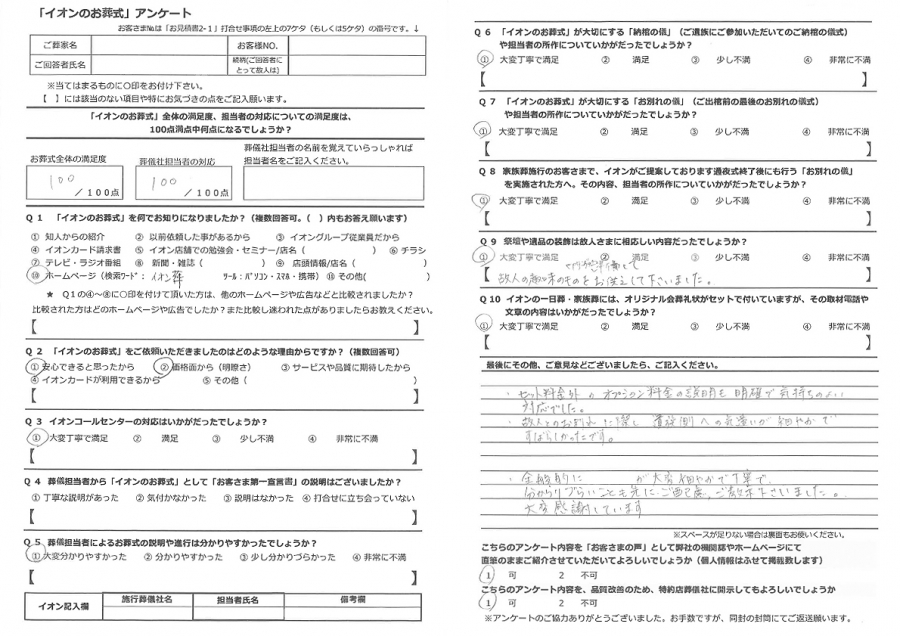 「イオンのお葬式」アンケート
お客さま№は「お見積書2-1」打合せ事項の左上の7ケタ(もしくは5ケタ)の番号です。↓
ご葬家名 お客様NO.
ご回答者氏名 続柄(ご回答者にとって故人は)
※当てはまるものに○印をお付け下さい。
【 】には該当のない項目や特にお気づきの点をご記入願います。
「イオンのお葬式」全体の満足度、担当者の対応についての満足度は、
100点満点中何点になるでしょうか?
お葬式全体の満足度 葬儀社担当者の対応 葬儀社担当者の名前を覚えていらっしゃれば
担当者名をご記入ください。
100 /100点 100 /100点
Q1 「イオンのお葬式」を何でお知りになりましたか?(複数回答可。( )内もお答え願います)
① 知人からの紹介 ② 以前依頼した事があるから ③ イオングループ従業員だから
④ イオンカード請求書 ⑤ イオン店舗での勉強会・セミナー/店名( ) ⑥ チラシ
⑦ テレビ・ラジオ番組 ⑧ 新聞・雑誌( ) ⑨ 店頭情報/店名( )
⑩ ホームページ(検索ワード: イオン葬 ツール:パソコン・スマホ・携帯) ⑪ その他( )
★ Q1の④~⑧に○印を付けて頂いた方は、他のホームページや広告などと比較されましたか?
比較された方はどのホームページや広告でしたか?また比較し迷われた点がありましたらお教えください。
【 】
Q2 「イオンのお葬式」をご依頼いただきましたのはどのような理由からですか?(複数回答可)
① 安心できると思ったから ② 価格面から(明瞭さ) ③ サービスや品質に期待したから
④ イオンカードが利用できるから ⑤ その他( )
【 】
Q3 イオンコールセンターの対応はいかがだったでしょうか?
① 大変丁寧で満足 ② 満足 ③ 少し不満 ④ 非常に不満
【 】
Q4 葬儀担当者から「イオンのお葬式」として「お客さま第一宣言書」の説明はございましたか?
① 丁寧な説明があった ② 気付かなかった ③ 説明はなかった ④ 打合せに立ち会っていない
【 】
Q5 葬儀担当者によるお葬式の説明や進行は分かりやすかったでしょうか?
① 大変分かりやすかった ② 分かりやすかった ③ 少し分かりづらかった ④ 非常に不満
【 】
イオン記入欄 施行葬儀社名 担当者氏名 備考欄
Q6 「イオンのお葬式」が大切にする「納棺の儀」(ご遺族にご参加いただいてのご納棺の儀式)
や担当者の所作についていかがだったでしょうか?
① 大変丁寧で満足 ② 満足 ③ 少し不満 ④ 非常に不満
【 】
Q7 「イオンのお葬式」が大切にする「お別れの儀」(ご出棺前の最後のお別れの儀式)
や担当者の所作についていかがだったでしょうか?
① 大変丁寧で満足 ② 満足 ③ 少し不満 ④ 非常に不満
【 】
Q8 家族葬施行のお客さまで、イオンがご提案しております通夜式終了後にも行う「お別れの儀」
を実施された方へ。その内容、担当者の所作についていかがだったでしょうか?
① 大変丁寧で満足 ② 満足 ③ 少し不満 ④ 非常に不満
【 】
Q9 祭壇や遺品の装飾は故人さまに相応しい内容だったでしょうか?
① 大変丁寧で満足 ② 満足 ③ 少し不満 ④ 非常に不満
【 故人の趣味のものをお供えして下さいました。 】
Q10 イオンの一日葬・家族葬には、オリジナル会葬礼状がセットで付いていますが、その取材電話や
文章の内容はいかがだったでしょうか?
① 大変丁寧で満足 ② 満足 ③ 少し不満 ④ 非常に不満
【 】
最後にその他、ご意見などございましたら、ご記入ください。
・セット料金外のオプション料金の説明も明確で気持ちのよい
対応でした。
・故人とのお別れに際し遺族側への気遣いが細やかで
すばらしかったです。
・全般的に が大変細やかで丁寧で、
分かりづらいことも先にご配慮、ご教示下さいました。
大変感謝しています
※スペースが足りない場合は裏面もお使いください。
こちらのアンケート内容を「お客さまの声」として弊社の機関誌やホームページにて
直筆のままご紹介させていただいてよろしいでしょうか(個人情報はふせて掲載致します)
1 可 2 不可
こちらのアンケート内容を、品質改善のため、特約店葬儀社に開示してもよろしいでしょうか
1 可 2 不可
※アンケートのご協力ありがとうございました。お手数ですが、同封の封筒にてご返送願います。